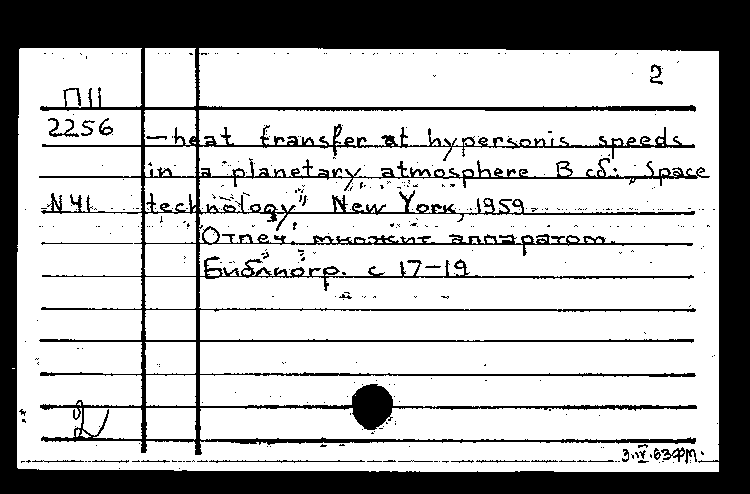 2
П11
2256
—heat transfer at hypersonis speeds
in a planetary atmosphere. В сб: „Space
N41 technology" New York, 1959.
Отпеч. множит аппаратом.
Библиогр. с 17-19.
2